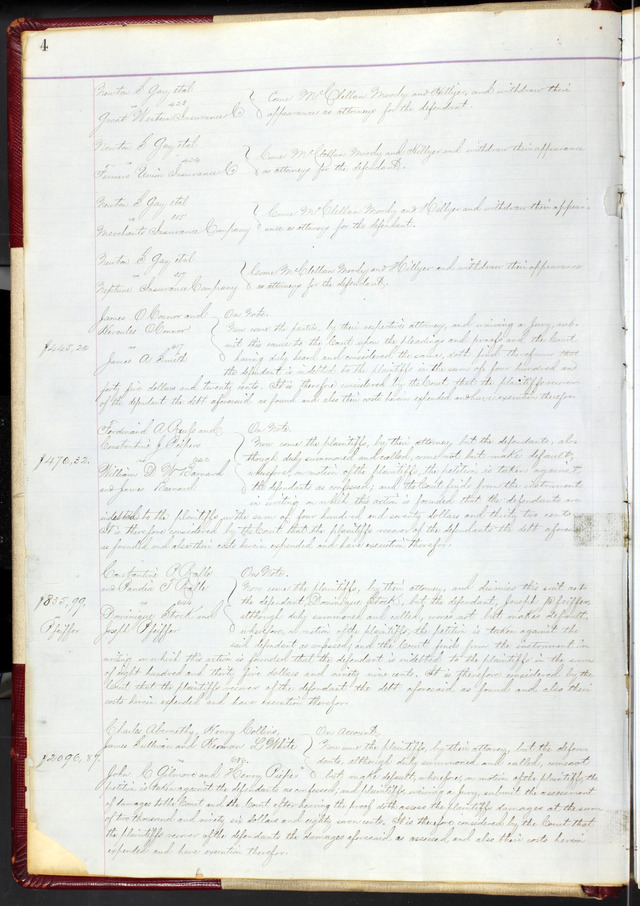 4
Newton S Gay et al
vs 423
Great Western Insurance Co
Come McClellan Moody and Hillyer, and withdraw their
appearance as attorneys for the defendant.
Newton S Gay et al
vs 424
Farmers Union Insurance Co
Come McClellan Moody and Hillyer and withdraw their appearance
as attorneys for the defendant.
Newton S Gay et al
vs
Merchants Insurance Company
Come McClellan Moody and Hillyer and withdraw their appear-
ance as attorneys for the defendant.
Newton S Gay et al
vs
Neptune Insurance Company
Come McClellan Moody and Hillyer and withdraw their appearance
as attorneys for the defendant.
James O Connor and
Hercules O Connor
$445,20
vs
James A Smith
On Note.
Now come the parties by their respective attorneys, and waiving a Jury, sub-
mit this cause to the Court upon the pleadings and proofs and the Court
having duly heard and considered the same, doth find the that
the defendant is indebted to the plaintiffs in the sum of four hundred and
forty five dollars and twenty cents. It is therefore considered by the Court that the plaintiffs recover
of the defendant the debt aforesaid as found and also their costs herein expended and have execution therefor
Ferdinand A and
Constantin J
$470,32.
vs
William D W Barnard
and James Barnard
On Note.
Now come the plaintiffs, by their attorney but the defendants, al-
though duly summoned and called, come not but make default;
wherefore, on motion of the plaintiffs, the petition is taken against
the defendants as confessed; and the Court finds from the instrument
in writing on which this action is founded that the defendants are
indebted to the plaintiffs in the sum of four hundred and seventy dollars and thirty two cents
It is therefore considered by the Court that the plaintiffs recover of the defendants the debt aforesaid
as found and also their costs herein expended and have execution therefor.
Constantine P
and
$835,99,
vs
Pfeiffer
Dominique Stock and
Joseph Pfeiffer
On Note.
Now come the plaintiffs, by their attorney, and dismiss this suit as to
the defendant Dominique Stock, but the defendant, Joseph Pfeiffer,
although duly summoned and called, comes not but makes default,
wherefore, on motion of the plaintiffs, the petition is taken against the
said defendant as confessed, and the Court finds from the instrument in
writing on which this action is founded that the defendant is indebted to the plaintiffs in the sum
of eight hundred and thirty five dollars and ninety nine cents. It is therefore considered by the
Court that the plaintiffs recover of the defendant the debt aforesaid as found and also their
costs herein expended and have execution therefor.
Charles Abernathy, Henry Collins,
James Sullivan and Herman L White
$2096,87.
vs
John C Gilmore and Henry
On Account,
Now come the plaintiffs, by their attorney, but the defen-
dants, although duly summoned and called, come not
but make default; wherefore, on motion of the plaintiffs, the
petition is taken against the defendants as confessed, and plaintiffs waiving a Jury, submit the assessment
of damages to the Court and the Court after hearing the proof doth assess the plaintiffs damages at the sum
of two thousand and ninety six dollars and eighty seven cents. It is therefore considered by the Court that
the plaintiffs recover of the defendants the damages aforesaid as assessed, and also their costs herein
expended and have execution therefor.